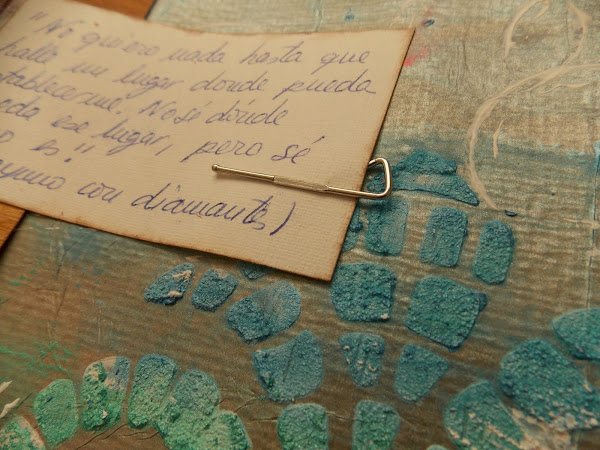 "No quiero nada hasta que
halle un lugar donde pueda
tablecerme. No sé dónde
eda ese lugar, pero sé
o es"
ayuno con diamantes)